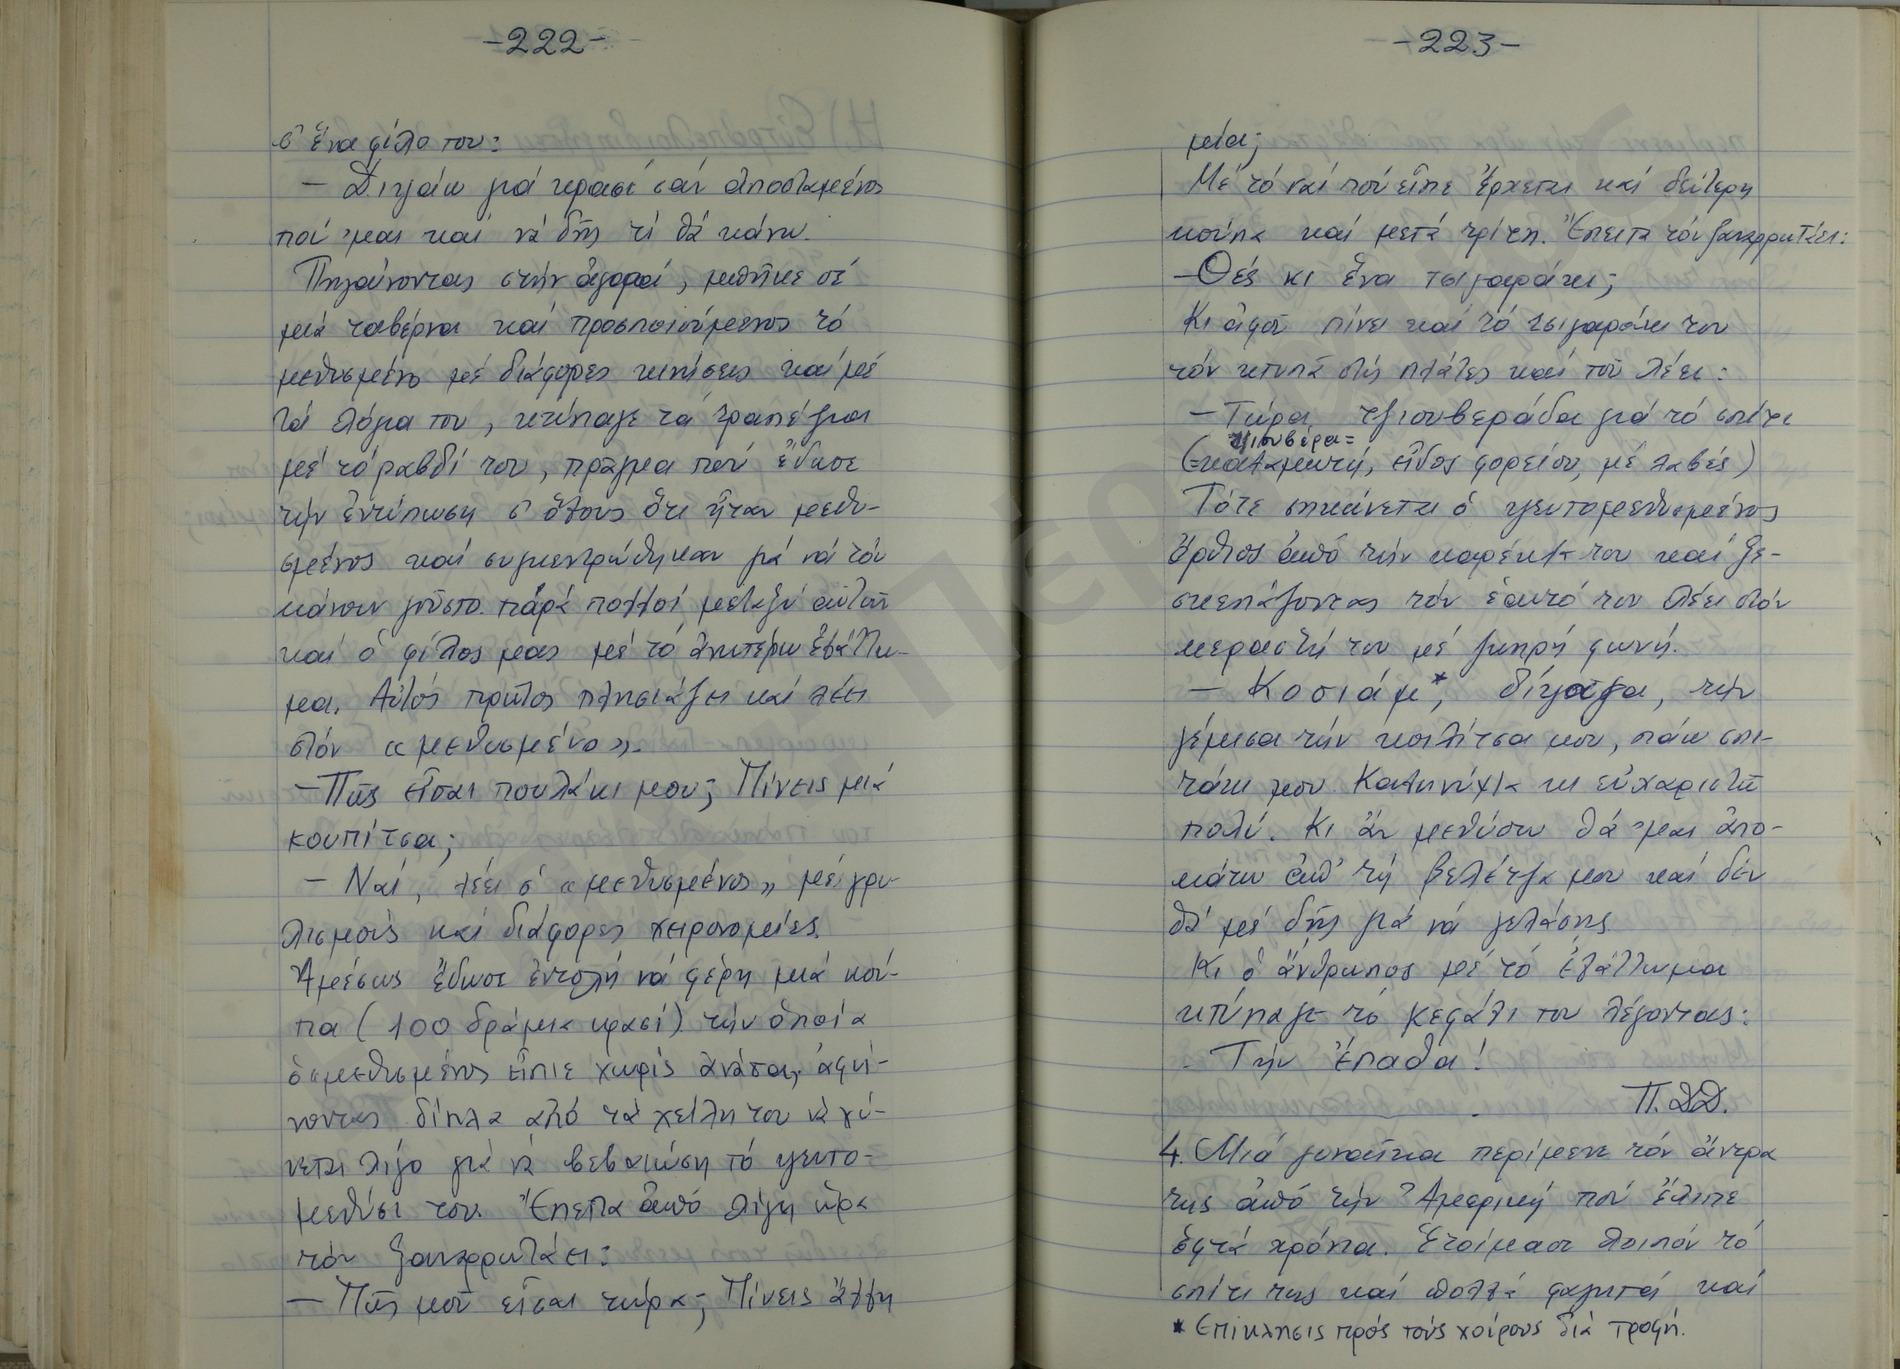 -222-
σ' ἕνα φίλο του:
- Διψάω γιά κρασί σάν ἀποσταμένος
πού 'μαι καί νά δῆς τί θά κάνω.
Πηγαίνοντας στήν ἀγορά, μπῆκε σέ
μιά ταβέρνα καί προσποιούμενος τό
μεθυσμένο μέ διάφορες κινήσεις καί μέ
τά λόγια του, κτύπαγε τά τραπέζια
μέ τό ραβδί του, πρᾶγμα πού ἔδωσε
τήν ἐντύπωση σ' ὅλους ὅτι ἦταν μεθυ-
σμένος καί συγκεντρώθηκαν γιά νά τόν
κάνουν γοῦστο πάρα πολλοί, μεταξύ αὐτῶν
καί ὁ φίλος μας μέ τό ἀνωτέρω ἐξάττω-
μα. Αὐτός πρῶτος πλησιάζει καί λέει
στόν «μεθυσμένο».
- Πῶς εἶσαι πουλάκι μου; Πίνεις μιά
κουπίτσα;
- Ναί, λέει ὁ «μεθυσμένος» μέ γρυ-
λισμούς καί διάφορες χειρονομίες.
Ἀμέσως ἔδωσε ἐντολή νά φέρη μιά κού-
πα (100 δράμια κρασί) τήν ὁποία
ὁ μεθυσμένος ἤπιε χωρίς ἀνάσα, ἀφή-
νοντας δίπλα ἀπό τά χείλη του νά χύ-
νεται λίγο γιά νά βεβαιώση τό ψευτο-
μεθύσι του. Ἔπειτα ἀπό λίγη ὥρα
τόν ξαναρρωτάει:
- Πῶς μοῦ εἶσαι τώρα; Πίνεις ἄλλη
-223-
μία;
Μέ τό ναί πού εἶπε ἔρχεται καί δεύτερη
κούπα καί μετά τρίτη. Ἔπειτα τόν ξαναρρωτάει:
- Θές κι ἕνα τσιγαράκι;
Κι ἀφοῦ πίνει καί τό τσιγαράκι του
τόν κτυπᾶ στίς πλάτες καί τοῦ λέει:
- Τώρα τζιουβεράδα γιά τό σπίτι
τζιουβέρα=
(εἶδος φορείου, μέ λαβές)
Τότε σηκώνεται ὁ ψευτομεθυσμένος
ὄρθιος ἀπό τήν καρέκλα του καί ξε-
σκεπάζοντας τόν ἑαυτό του λέει στόν
κεραστή του μέ ζωηρή φωνή.
- Κοσιάμ*, δίψαγα, τήν
γέμισα τήν κοιλίτσα μου, πάω σπι-
τάκι μου. Καληνύχτα κι εὐχαριστῶ
πολύ. Κι ἄν μεθύσω θά 'μαι ἀπο-
κάτω ἀπ' τή βελέντζα μου καί δέν
θά μέ δῆς γιά νά γελάσης.
Κι ὁ ἄνθρωπος μέ τό ἐξάττωμα
κτύπαγε τό κεφάλι του λέγοντας:
- Τήν ἔπαθα!
Π.ΔΔ.
4. Μιά γυναῖκα περίμενε τόν ἄντρα
της ἀπό τήν Ἀμερική πού ἔλειπε
ἑφτά χρόνια. Ἑτοίμασε λοιπόν τό
σπίτι της καί πολλά φαγητά καί
* Ἐπίκλησις πρός τούς χοίρους διά τροφή.